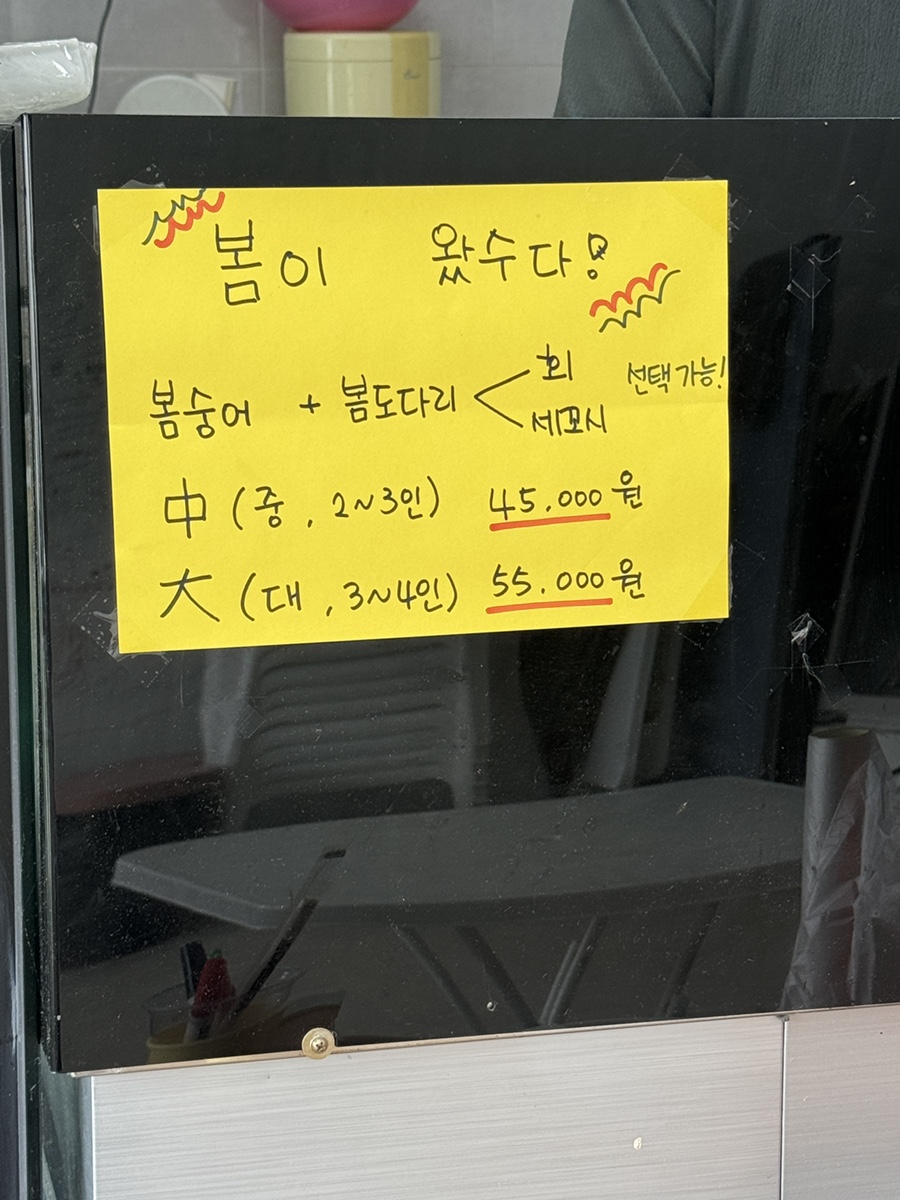 봄이 왔수다!
봄숭어 + 봄도다리 < 회 세꼬시 선택가능!
中 (중, 2~3인) 45.000원
大 (대, 3~4인) 55.000원